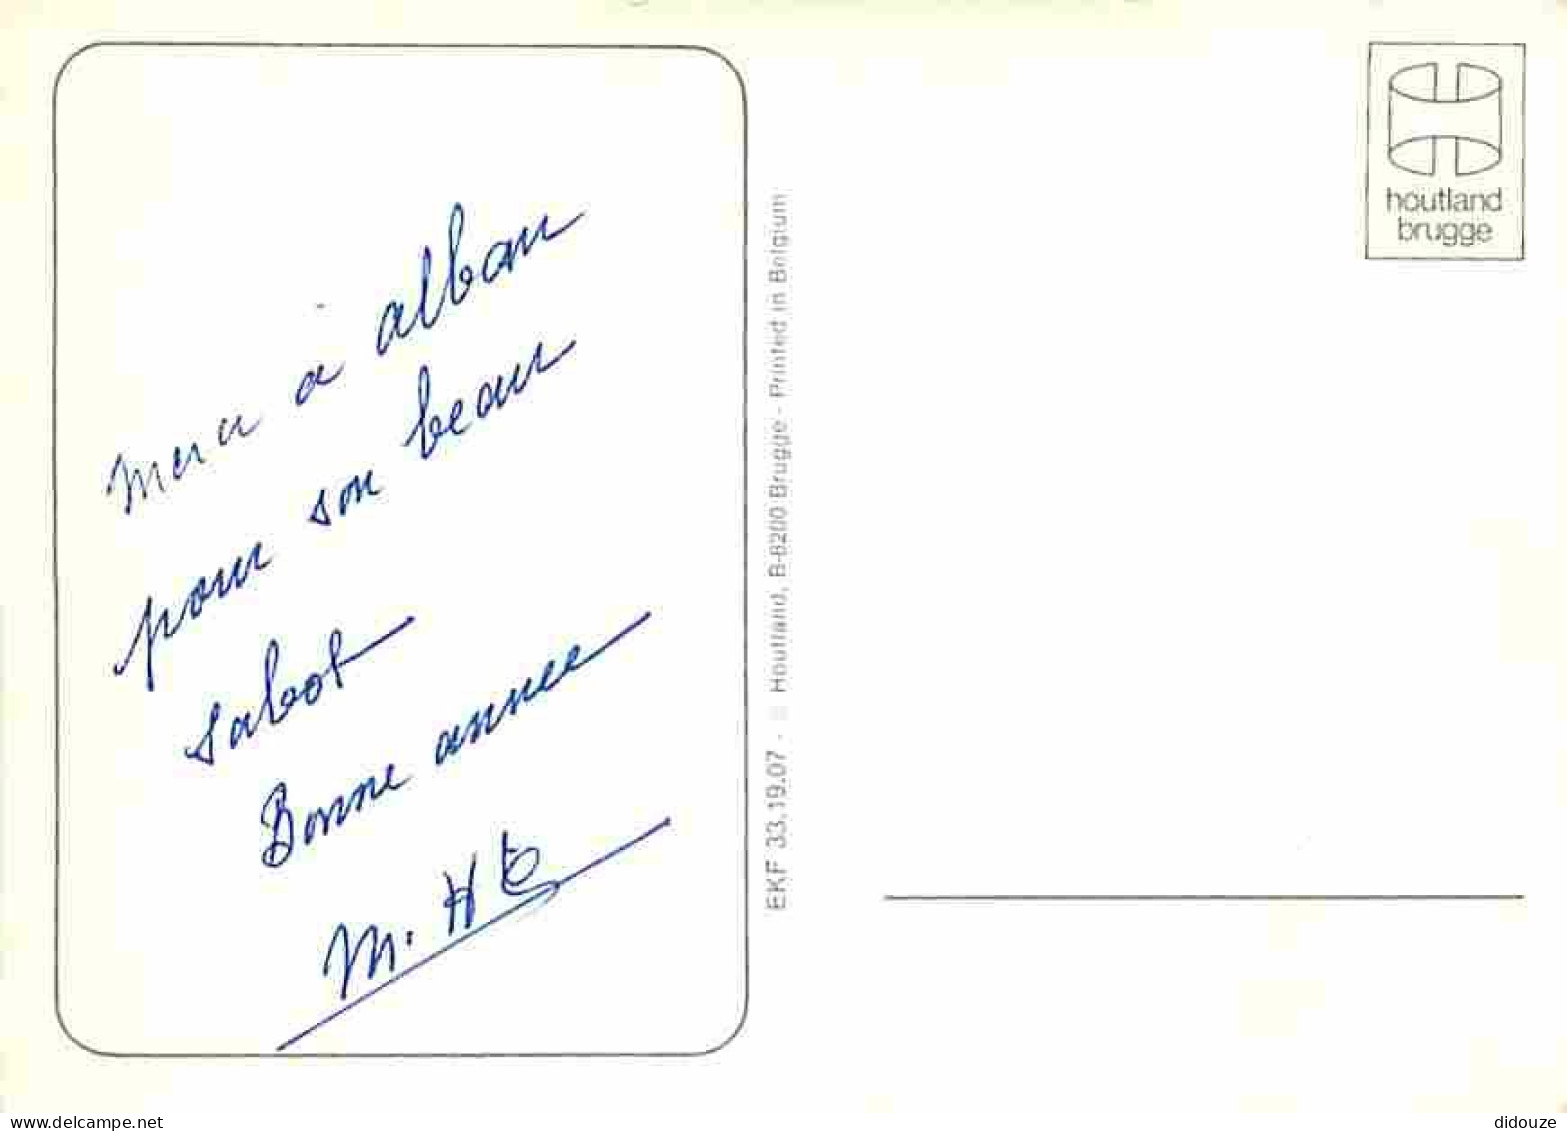 merci à alban
pour son beau
sabot
Bonne année
M. H
EKF 33.19.07 - © Houtland, B-8200 Brugge - Printed in Belgium
houtland
brugge
www.delcampe.net
didouze